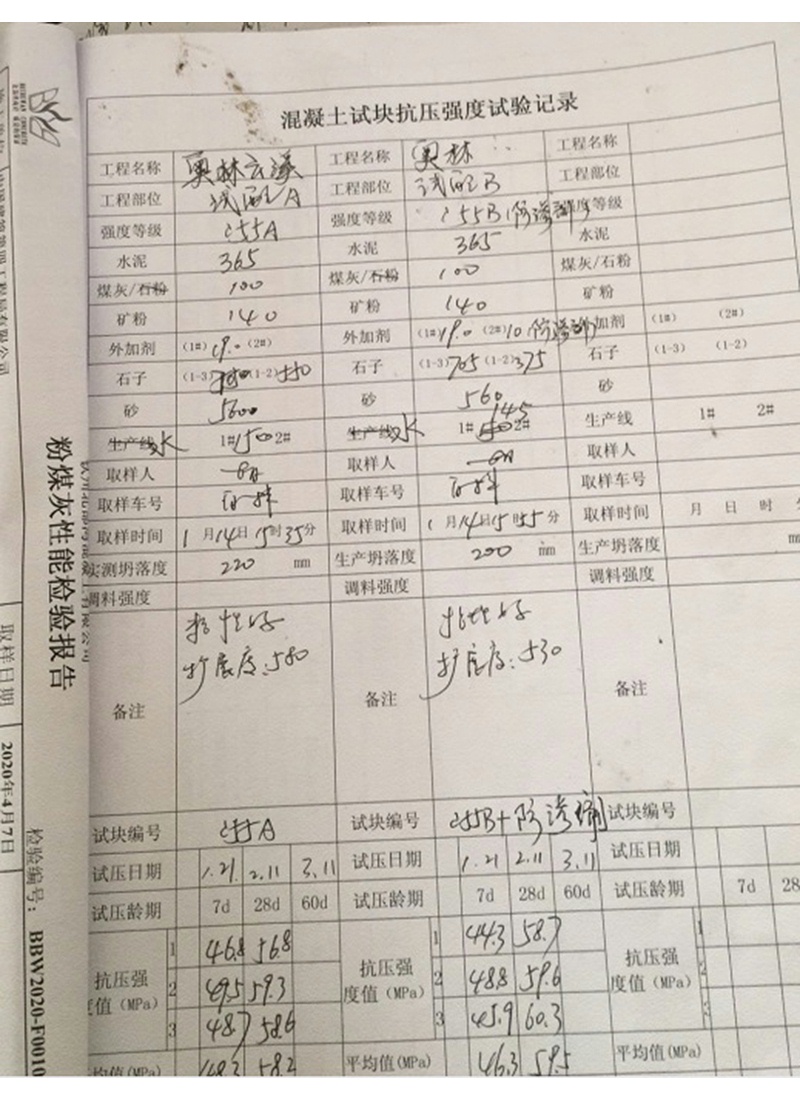 混凝土试块抗压强度试验记录
工程名称 奥林云溪 工程名称 奥林 工程名称
工程部位 试配A 工程部位 试配B 工程部位
强度等级 C55A 强度等级 C55B(防渗剂) 强度等级
水泥 365 水泥 365 水泥
煤灰/石粉 100 煤灰/石粉 100 煤灰/石粉
矿粉 140 矿粉 140 矿粉
外加剂 (1#) 19.0 (2#) 外加剂 (1#) 19.0 (2#) 10 防渗剂 外加剂 (1#) (2#)
石子 (1-3) (1-2) 石子 (1-3) 705 (1-2) 375 石子 (1-3) (1-2)
砂 砂 560 砂
生产线 水 1# 150 2# 生产线 水 1# 145 2# 生产线 1# 2#
取样人 取样人 取样人
取样车号 取样车号 取样车号
取样时间 1月14日15时35分 取样时间 1月14日15时55分 取样时间 月 日 时 分
实测坍落度 220 mm 生产坍落度 200 mm 生产坍落度 mm
调料强度 调料强度 调料强度
备注 扩展度:580 备注 扩展度:530 备注
试块编号 C55A 试块编号 C55B+防渗剂 试块编号
试压日期 1.21 2.11 3.11 试压日期 1.21 2.11 3.11 试压日期
试压龄期 7d 28d 60d 试压龄期 7d 28d 60d 试压龄期 7d 28
抗压强度值(MPa) 抗压强度值(MPa) 抗压强度值(MPa)
1 46.8 56.8 1 44.3 58.7 1
2 49.5 59.3 2 48.8 59.6 2
3 48.7 58.6 3 45.9 60.3 3
平均值(MPa) 48.3 58.2 平均值(MPa) 46.3 59.5 平均值(MPa)
粉煤灰性能检验报告
检验编号:BBW2020-F0010
取样日期 2020年4月7日